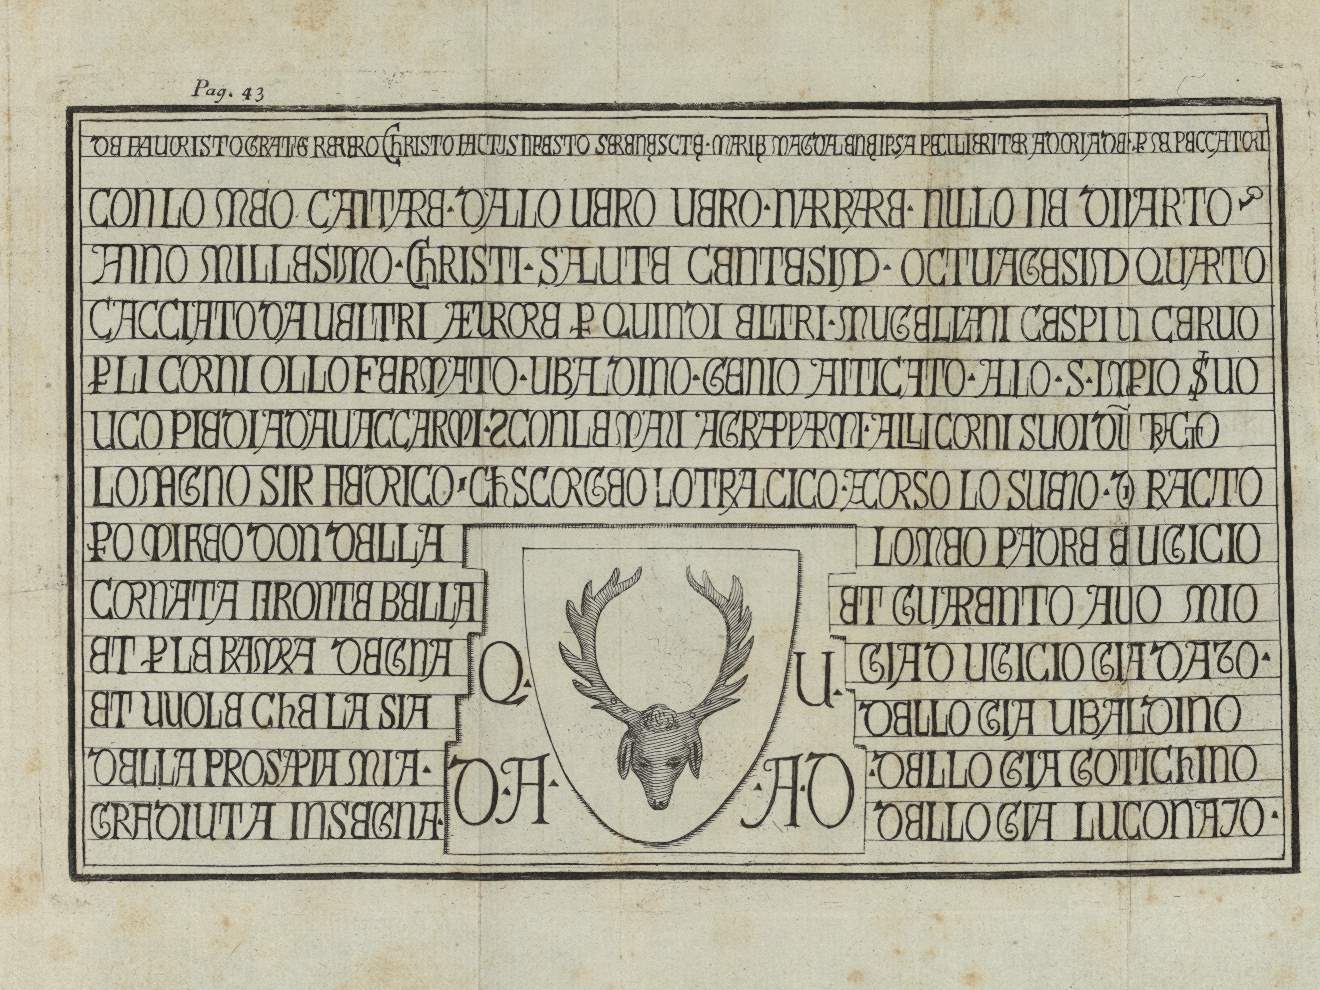 Pag. 43
DE FAVORI ISTO GRATIAS REFERO CHRISTO FACTUS IN FESTO SERENE SCTE · MARIE MAGDALENE IPSA PECULIERITER ADORI AD DE · P ME PECCATORI
CON LO MEO CANTARE · DALLO UERO UERO · NARRARE · NULLO NE DIPARTO
ANNO MILLESIMO · CHRISTI · SALUTE CENTESIMO · OCTUAGESIMO QUARTO
CACCIATO DA UELTRI A FURORE P QUINDI ELTRI · MUGELLANI CESPI UN CERUO
P LI CORNI OLLO FERMATO · UBALDINO · GENIO ANTICATO · ALO · S · IMPIO SUO
UCO PIEDI ADAUACCARMI · CON LE MANI AGRAPPARMI · ALLI CORNI SUOI
LO MAGNO SIR FEDRICO · CH SCORGEO LO TRALCICO · ACORSO LO SUENO · DI FACTO
PO MI FEO DON DELLA
CORNATA FRONTE BELLA
ET P LE RAMA DEGNA
ET UUOLE CHE LA SIA
DELLA PROSAPIA MIA ·
GRADIUTA INSEGNA ·
Q · U ·
D · A · · A · D
LO MEO PADRE E UGICIO
ET GUARENTO AUO MIO
GIA D UGICIO GIA DAZO ·
DELLO GIA UBALDINO
· DELLO GIA GOTICHINO
DELLO GIA LUCONAZO ·